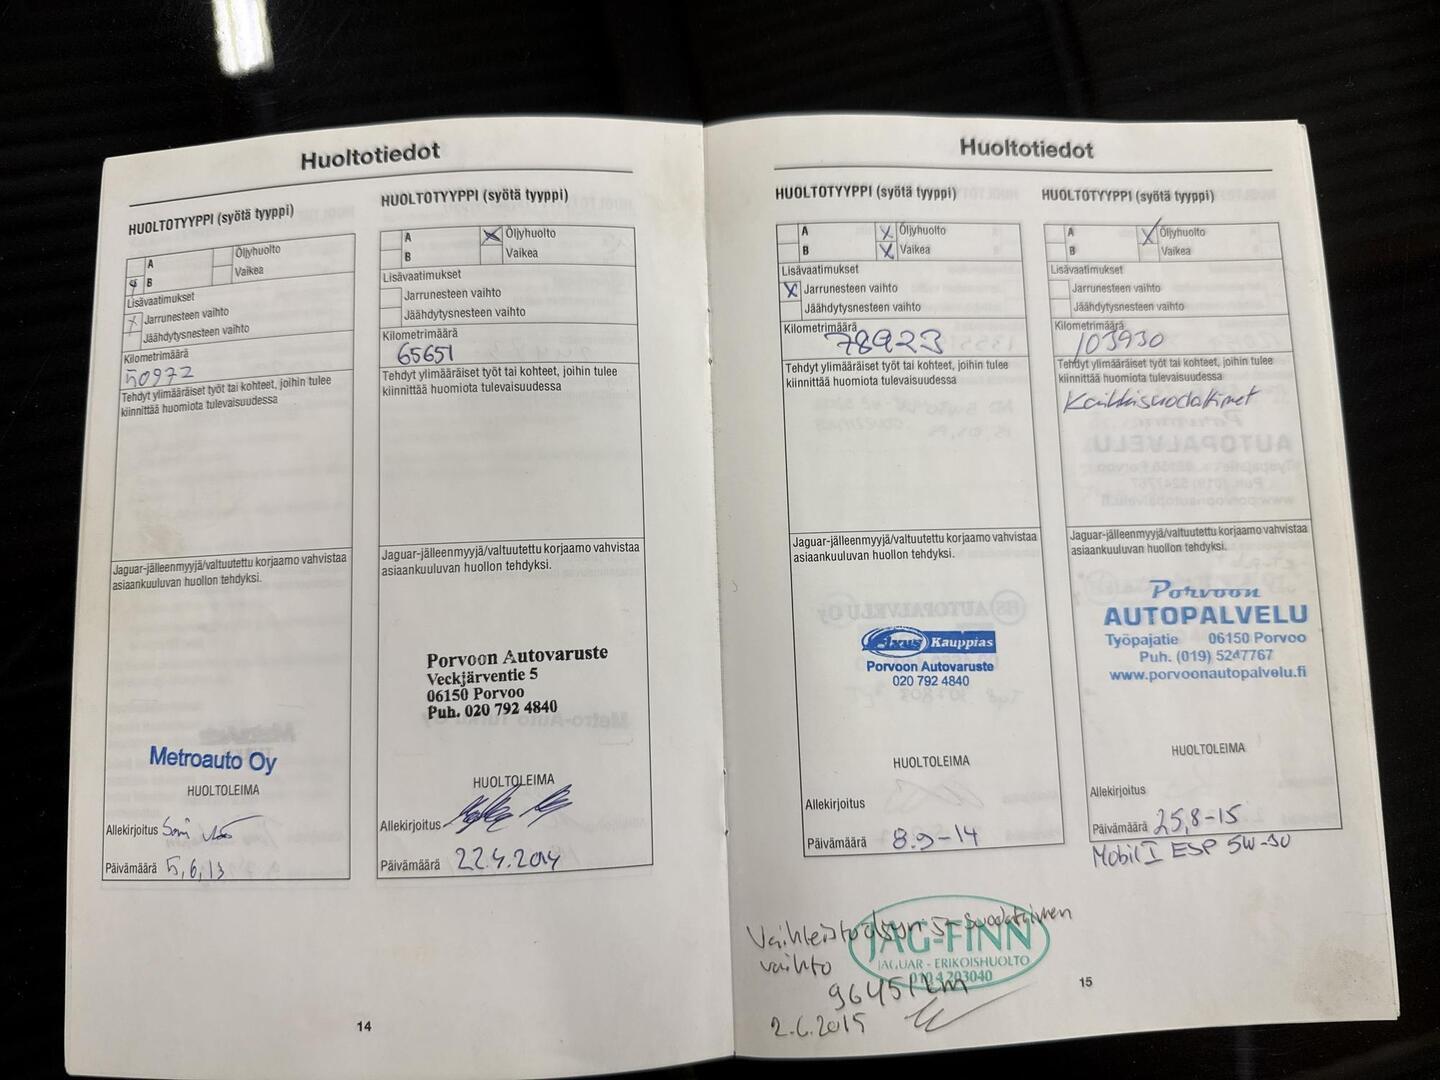 Huoltotiedot
HUOLTOTYYPPI (syötä tyyppi)
A
Öljyhuolto
B
Vaikea
Lisävaatimukset
x Jarrunesteen vaihto
Jäähdytysnesteen vaihto
Kilometrimäärä
50972
Tehdyt ylimääräiset työt tai kohteet, joihin tulee
kiinnittää huomiota tulevaisuudessa
Jaguar-jälleenmyyjä/valtuutettu korjaamo vahvistaa
asiaankuuluvan huollon tehdyksi.
Metroauto Oy
HUOLTOLEIMA
Allekirjoitus
Päivämäärä 5,6,13
HUOLTOTYYPPI (syötä tyyppi)
A
x Öljyhuolto
B
Vaikea
Lisävaatimukset
Jarrunesteen vaihto
Jäähdytysnesteen vaihto
Kilometrimäärä
65651
Tehdyt ylimääräiset työt tai kohteet, joihin tulee
kiinnittää huomiota tulevaisuudessa
Jaguar-jälleenmyyjä/valtuutettu korjaamo vahvistaa
asiaankuuluvan huollon tehdyksi.
Porvoon Autovaruste
Veckjärventie 5
06150 Porvoo
Puh. 020 792 4840
HUOLTOLEIMA
Allekirjoitus
Päivämäärä 22.4.2014
14
Huoltotiedot
HUOLTOTYYPPI (syötä tyyppi)
A
x Öljyhuolto
B
x Vaikea
Lisävaatimukset
x Jarrunesteen vaihto
Jäähdytysnesteen vaihto
Kilometrimäärä
78923
Tehdyt ylimääräiset työt tai kohteet, joihin tulee
kiinnittää huomiota tulevaisuudessa
Jaguar-jälleenmyyjä/valtuutettu korjaamo vahvistaa
asiaankuuluvan huollon tehdyksi.
Fixus Kauppias
Porvoon Autovaruste
020 792 4840
HUOLTOLEIMA
Allekirjoitus
Päivämäärä 8.9-14
HUOLTOTYYPPI (syötä tyyppi)
A
x Öljyhuolto
B
Vaikea
Lisävaatimukset
Jarrunesteen vaihto
Jäähdytysnesteen vaihto
Kilometrimäärä
103930
Tehdyt ylimääräiset työt tai kohteet, joihin tulee
kiinnittää huomiota tulevaisuudessa
Kaikkisuodattimet
Jaguar-jälleenmyyjä/valtuutettu korjaamo vahvistaa
asiaankuuluvan huollon tehdyksi.
Porvoon
AUTOPALVELU
Työpajatie 06150 Porvoo
Puh. (019) 5247767
www.porvoonautopalvelu.fi
HUOLTOLEIMA
Allekirjoitus
Päivämäärä 25,8-15
Mobil 1 ESP 5W-30
Vaihteistoöljyn ja suodattimen
vaihto
JAG-FINN
JAGUAR - ERIKOISHUOLTO
010 4203040
96451km
2.6.2015
15